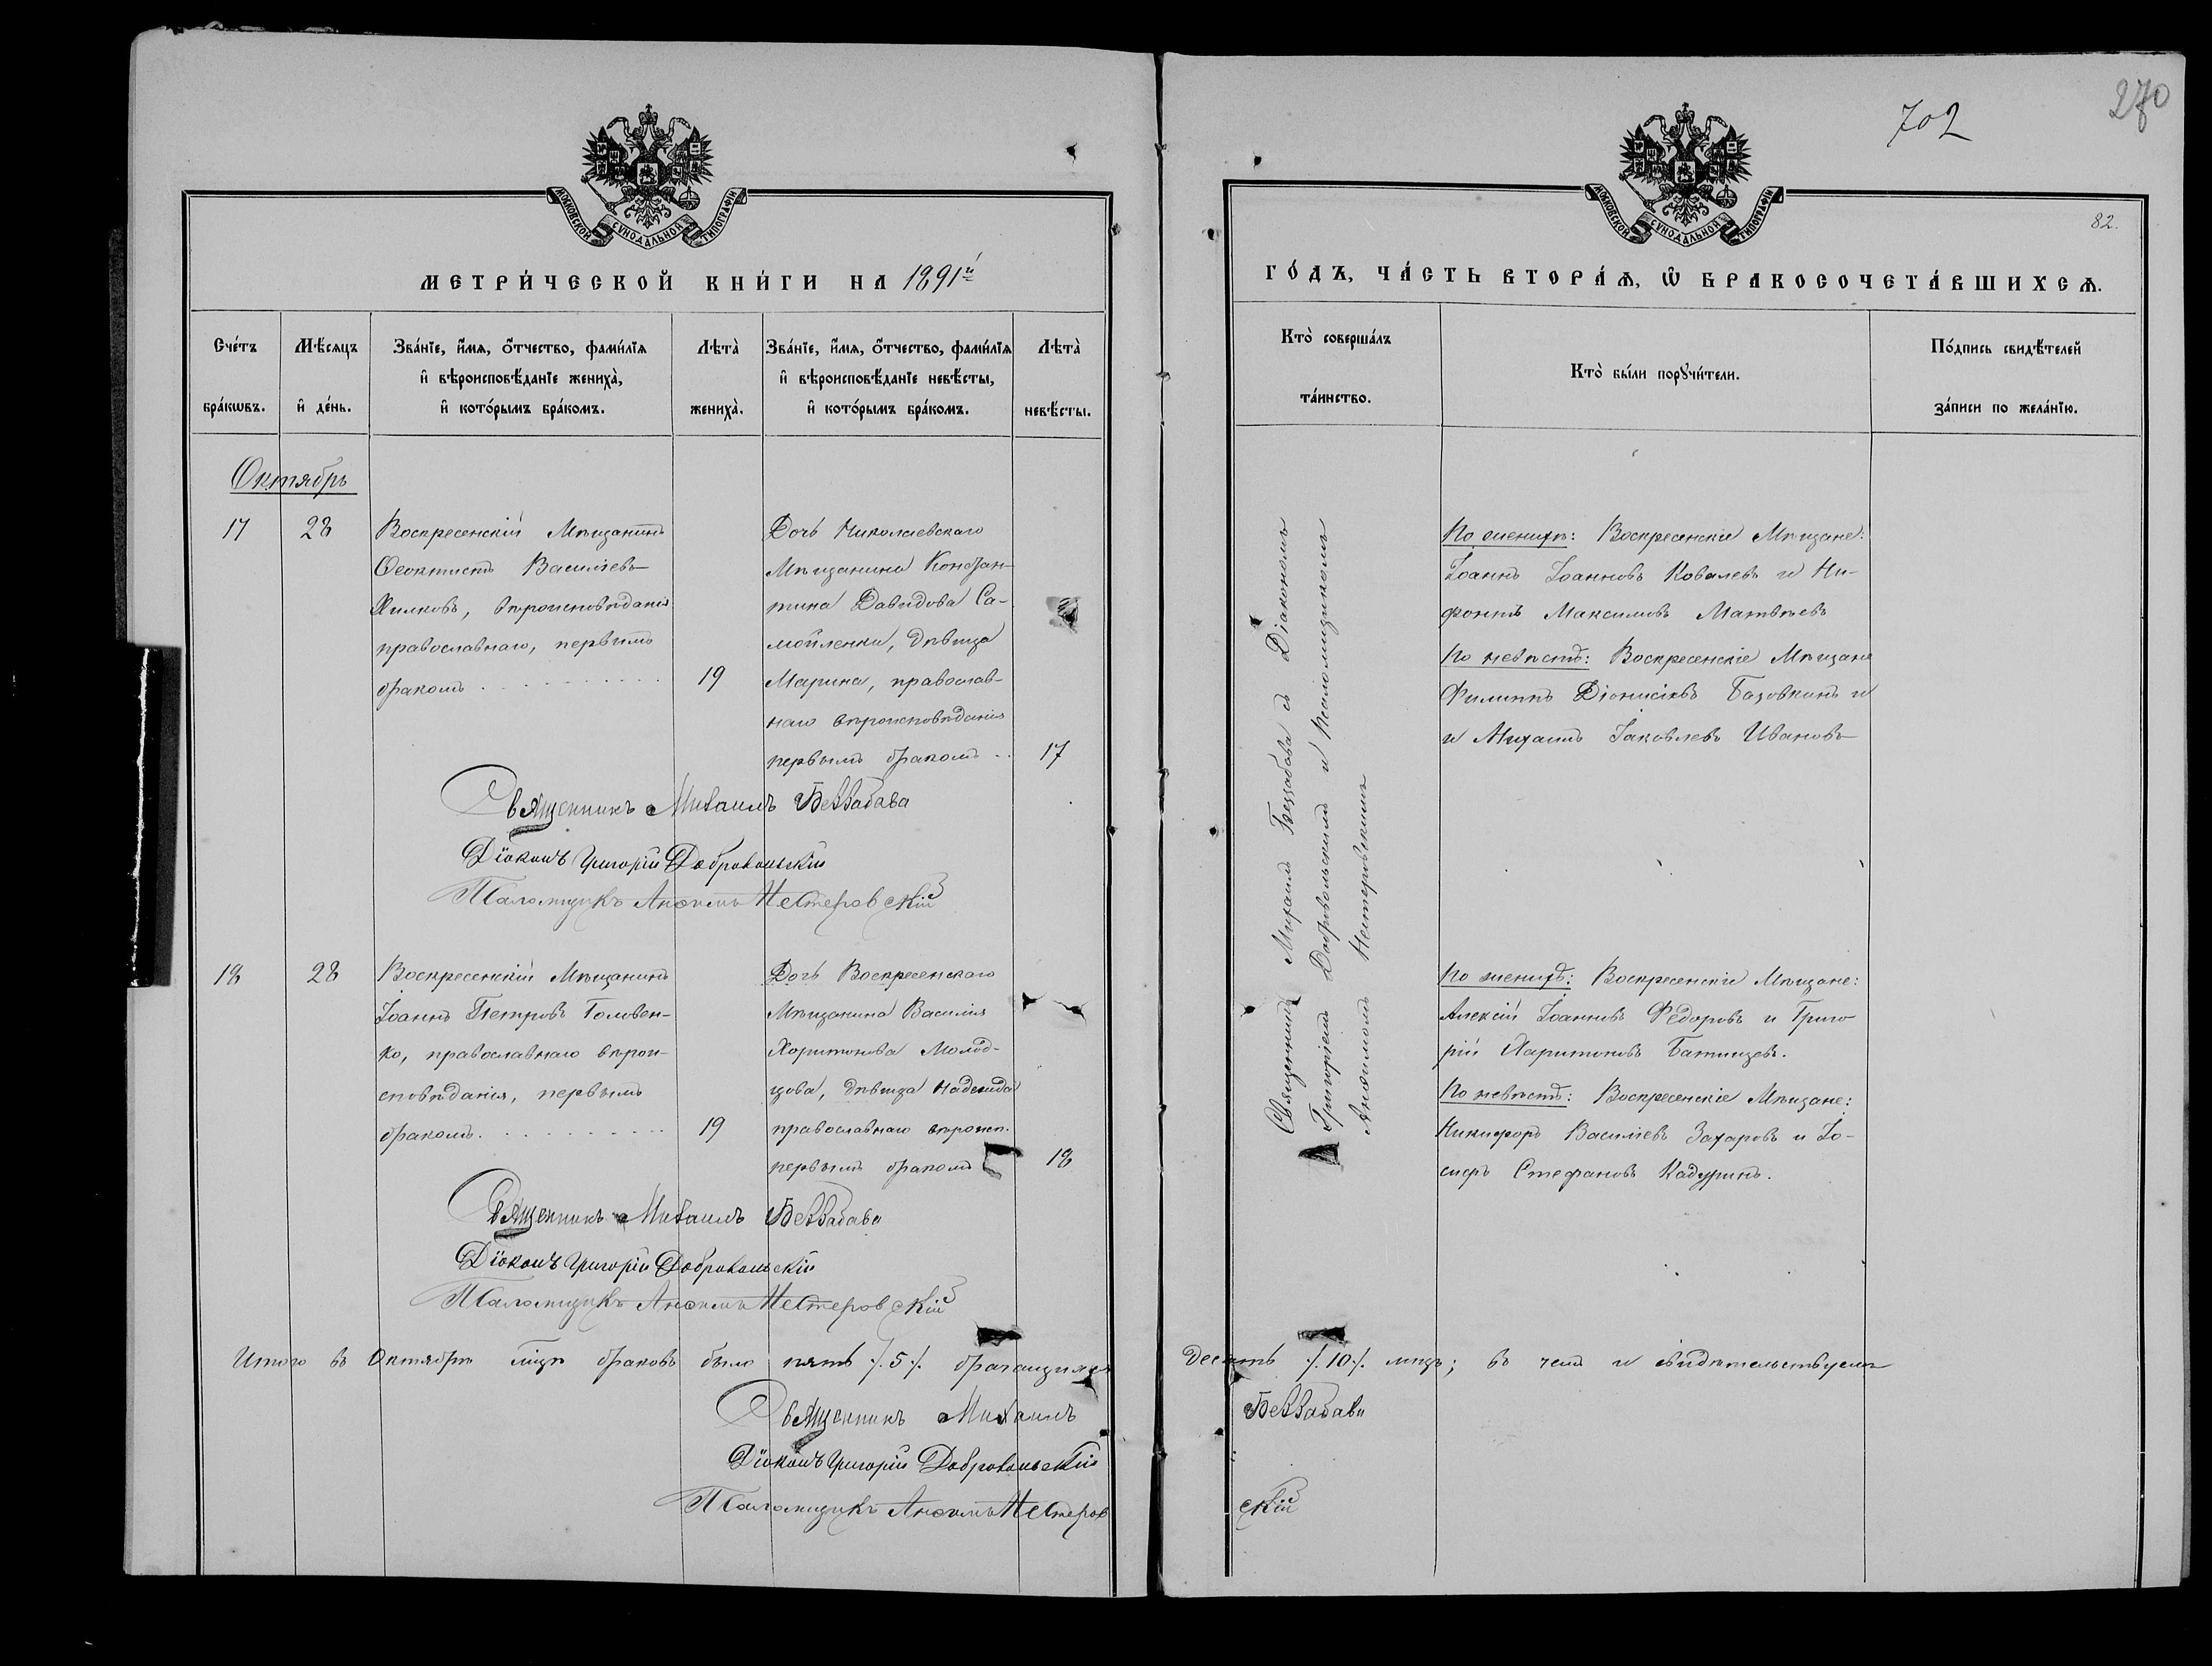 702
270
82.
МОСКОВСКОЙ СѴНОДАЛЬНОЙ ТИПОГРАФІИ
МОСКОВСКОЙ СѴНОДАЛЬНОЙ ТИПОГРАФІИ
МЕТРИ́ЧЕСКОЙ КНИ́ГИ НА 1891й
ГО́ДЪ, ЧА́СТЬ ВТОРА́Ѧ, Ѽ БРАКОСОЧЕТА́ВШИХСѦ.
Сче́тъ
бра́кѡвъ.
Мѣ́сяцъ
и де́нь.
Зва́нїе, и́мя, о́тчество, фами́лїя
и вѣроисповѣ́данїе жениха̀,
и кото́рымъ бра́комъ.
Лѣта̀
жениха̀.
Зва́нїе, и́мя, о́тчество, фами́лїя
и вѣроисповѣ́данїе невѣ́сты,
и кото́рымъ бра́комъ.
Лѣта̀
невѣ́сты.
Кто̀ соверша́лъ
та́инство.
Кто̀ бы́ли порꙋчи́тели.
По́дпись свидѣ́телей
за́писи по жела́нїю.
Октябрь
17
28
Воскресенскій Мѣщанинъ
Ѳеоктистъ Васильевъ
Хилковъ, вѣроисповѣданія
православнаго, первымъ
бракомъ
19
Дочь Николаевскаго
Мѣщанина Констан-
тина Давидова Са-
мойленки, дѣвица
Марина, православ-
наго вѣроисповѣданія
первымъ бракомъ
17
Священникъ Михаилъ Беззабава
Діаконъ Григорій Добровольскій
Псаломщикъ Анѳимъ Нестеровскій
Священникъ Михаилъ Беззабава съ Діакономъ
Григоріемъ Добровольскимъ и Псаломщикомъ
Анѳимомъ Нестеровскимъ
По женихѣ: Воскресенскіе Мѣщане:
Іоаннъ Іоанновъ Ковалевъ и Ни-
фонтъ Максимовъ Матвѣевъ
По невѣстѣ: Воскресенскіе Мѣщане
Филиппъ Діонисіевъ Базовкинъ и
и Михаилъ Іаковлевъ Ивановъ
18
28
Воскресенскій Мѣщанинъ
Іоаннъ Петровъ Головен-
ко, православнаго вѣрои-
сповѣданія, первымъ
бракомъ.
19
Дочь Воскресенскаго
Мѣщанина Василія
Харитонова Молод-
цова, дѣвица Надежда
православнаго вѣроисп.
первымъ бракомъ
18
По женихѣ: Воскресенскіе Мѣщане:
Алексій Іоанновъ Федоровъ и Григо
рій Харитоновъ Батищевъ.
По невѣстѣ: Воскресенскіе Мѣщане:
Никифоръ Васильевъ Захаровъ и Іо-
сифъ Стефановъ Кадуринъ.
Священникъ Михаилъ Беззабава
Діаконъ Григорій Добровольскій
Псаломщикъ Анѳимъ Нестеровскій
Итого въ Октябрѣ м̃цѣ браковъ было пять /.5./. брачащихся десять /.10./. лицъ; въ чемъ и свидѣтельствуемъ
Священникъ Михаилъ Беззабава
Діаконъ Григорій Добровольскій
Псаломщикъ Анѳимъ Нестеровскій